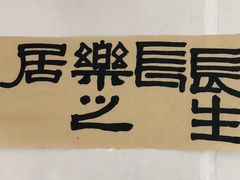 長生長樂之居